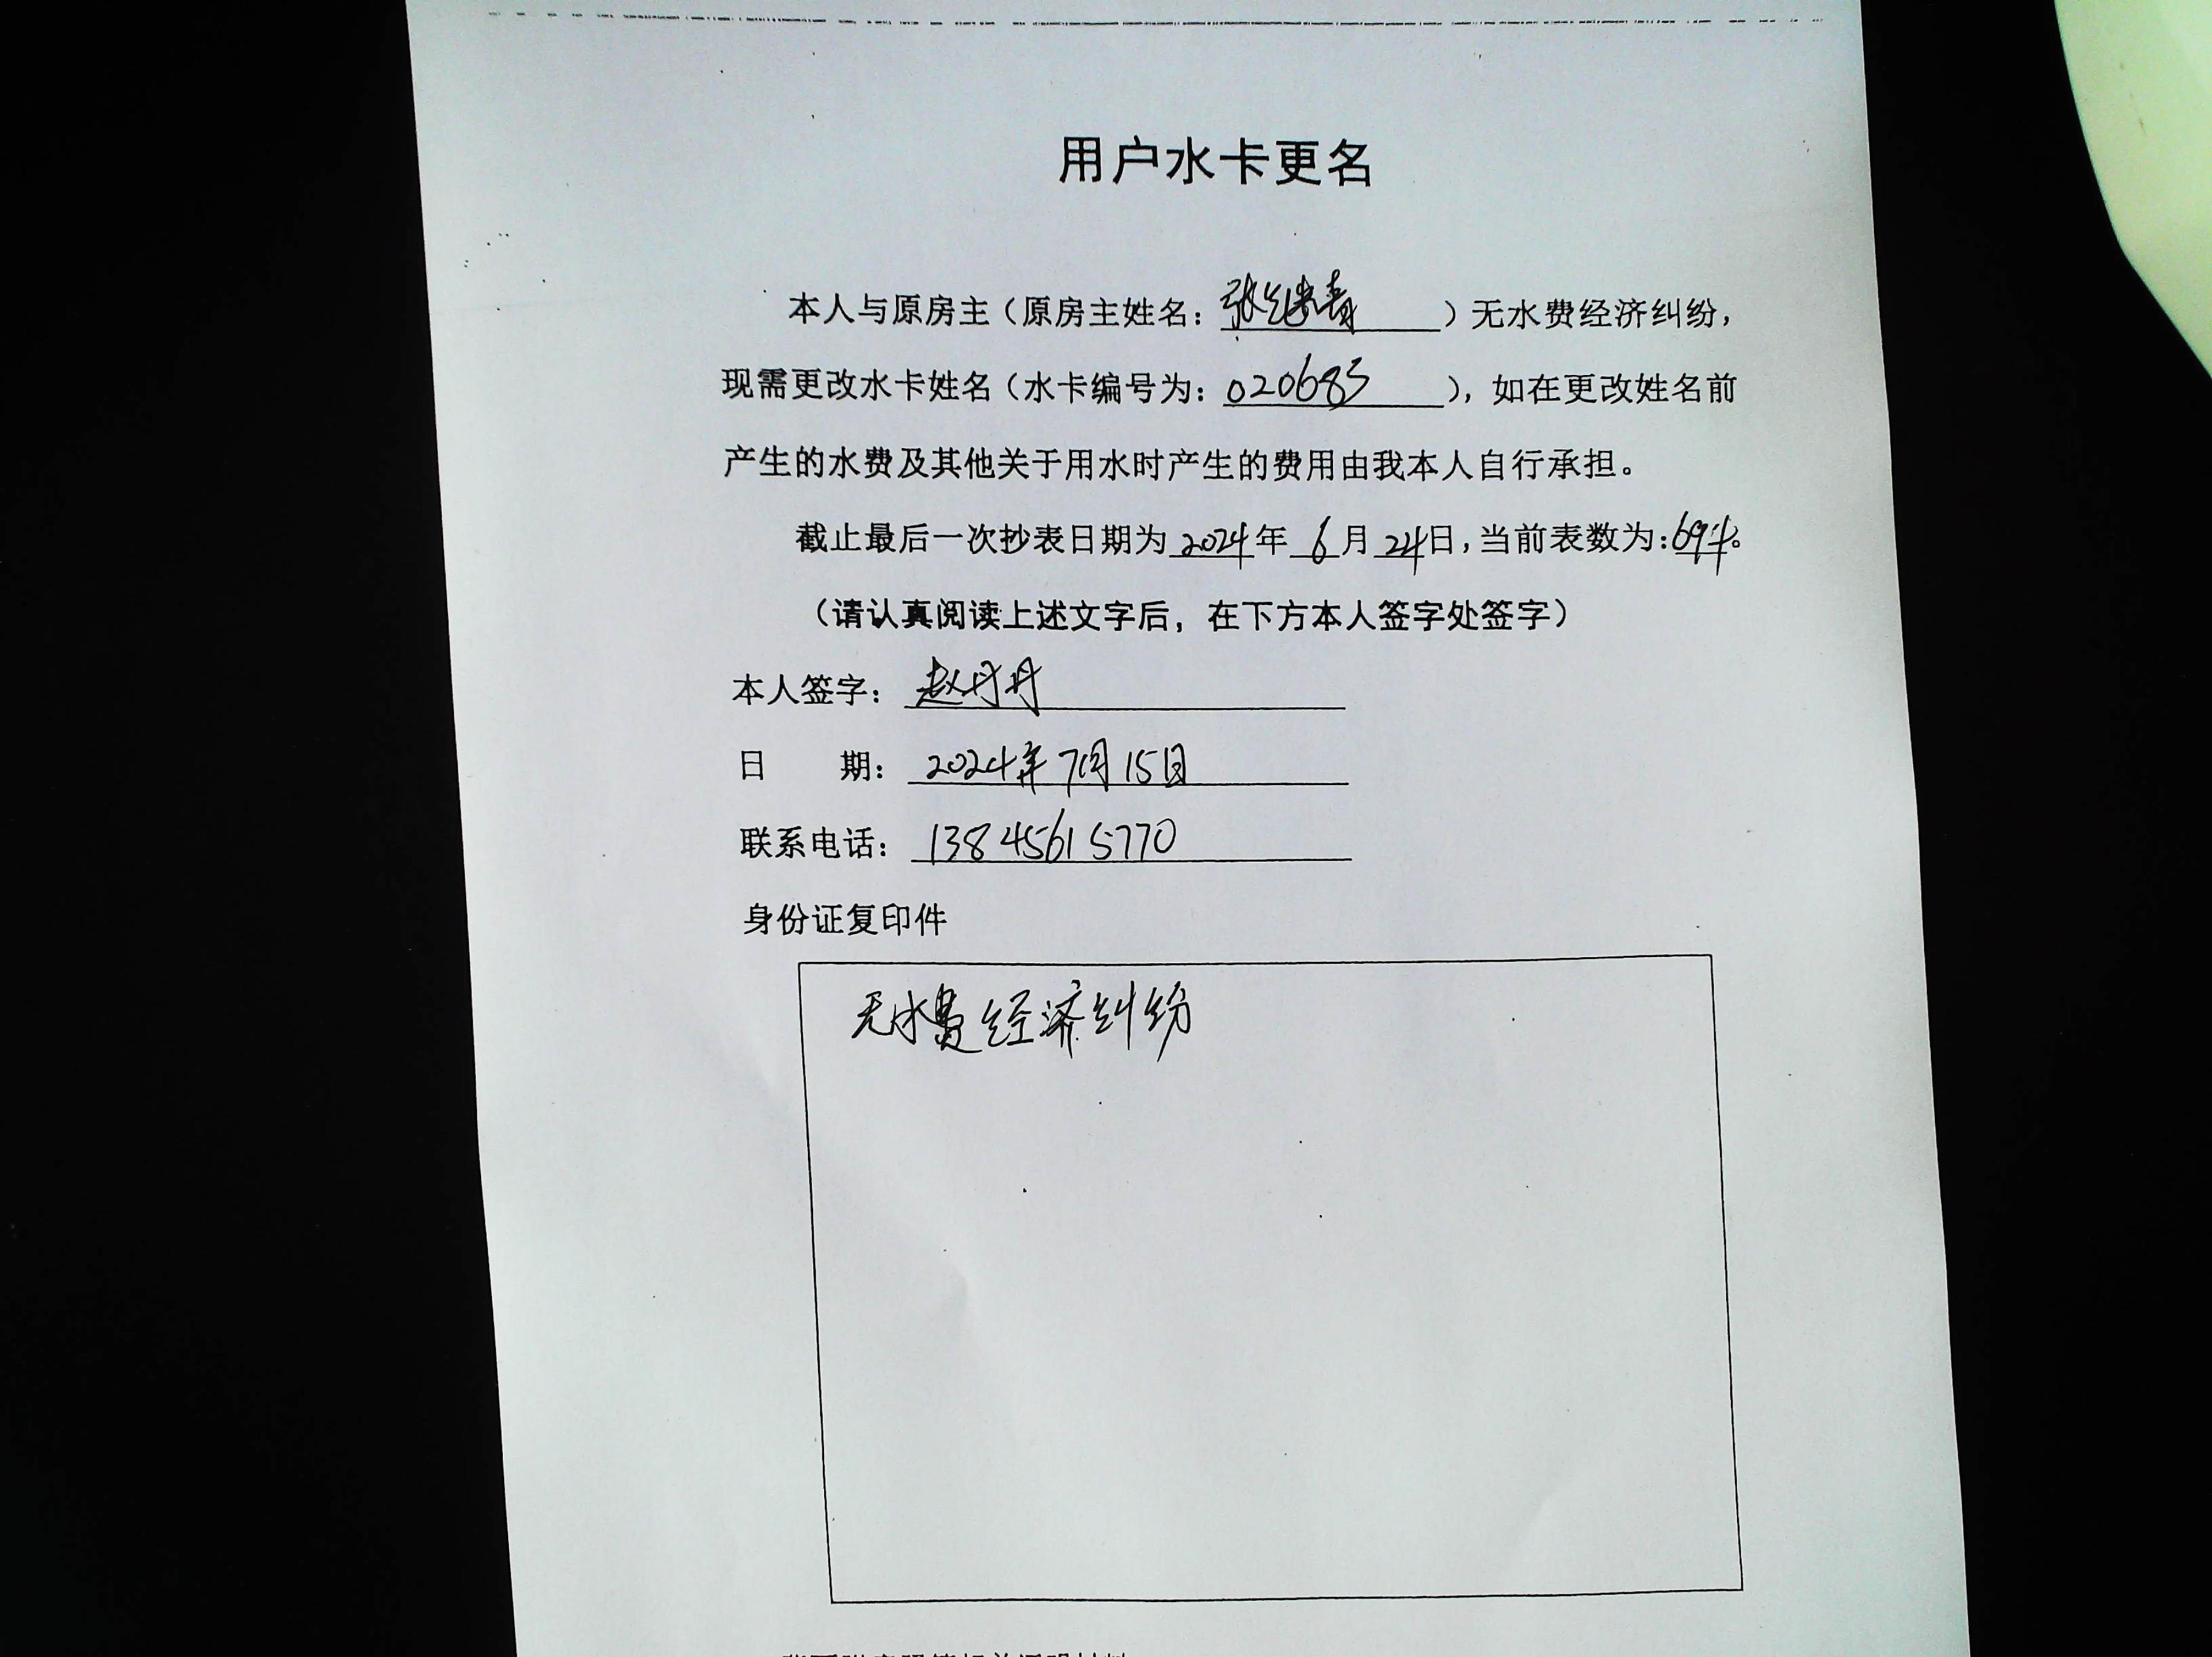 用户水卡更名
本人与原房主（原房主姓名：张继青）无水费经济纠纷，
现需更改水卡姓名（水卡编号为：020685），如在更改姓名前
产生的水费及其他关于用水时产生的费用由我本人自行承担。
截止最后一次抄表日期为2024年6月24日，当前表数为：694。
（请认真阅读上述文字后，在下方本人签字处签字）
本人签字：赵丹丹
日 期：2024年7月15日
联系电话：13845615770
身份证复印件
无水费经济纠纷